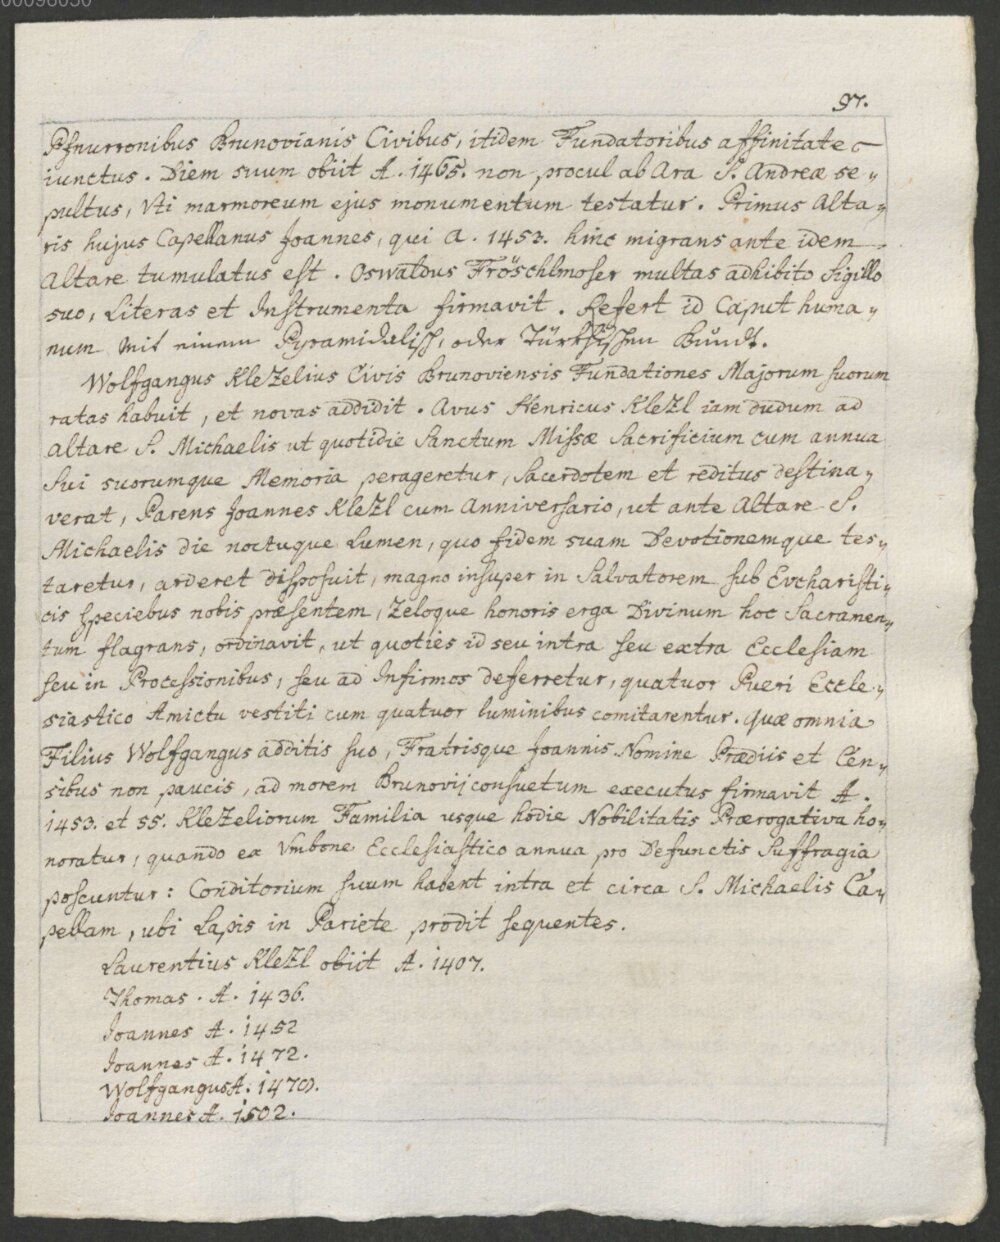 00096030
97.
Pfnurronibus Brunovianis Civibus, itidem Fundatoribus affinitate
iunctus. Diem suum obiit A. 1465. non procul ab Ara S. Andreæ se„
pultus, Uti marmoreum ejus monumentum testatur. Primus Alta„
ris hujus Capellanus Joannes, qui A. 1453. hinc migrans ante idem
Altare tumulatus est. Oswaldus Fröschlmoser multas adhibito Sigillo
suo, Literas et Instrumenta firmavit. Refert id Caput huma„
num mit einem Pyramidalisch, oder Türkhischen Bundt.
Wolfgangus KleZelius Civis Brunoviensis Fundationes Majorum suorum
ratas habuit, et novas addidit. Avus Henricus KleZl iam dudum ad
Altare S. Michaelis ut quotidie Sanctum Missæ Sacrificium cum annua
Sui suorumque Memoria perageretur, Sacerdotem et reditus destina„
verat, Parens Joannes KleZl cum Anniversario, ut ante Altare S.
Michaelis die noctuque Lumen, quo fidem suam Devotionemque tes„
taretur, arderet disposuit, magno insuper in Salvatorem sub Evcharisti„
cis speciebus nobis præsentem, Zeloque honoris erga Divinum hoc Sacramen„
tum flagrans, ordinavit, ut quoties id seu intra seu extra Ecclesiam
seu in Processionibus, seu ad Infirmos deferretur, quatuor Pueri Eccle„
siastico Amictu vestiti cum quatuor luminibus comitarentur. Quæ omnia
Filius Wolfgangus additis suo, Fratrisque Joannis Nomine Prædiis et Cen„
sibus non paucis, ad morem Brunovij consuetum executus firmavit A.
1453. et 55. KleZeliorum Familia usque hodie Nobilitatis Prærogativa ho„
noratur, quando ex Umbone Ecclesiastico annua pro Defunctis Suffragia
poscuntur: Conditorium suum habent intra et circa S. Michaelis Ca„
pellam, ubi Lapis in Pariete prodit sequentes.
Laurentius KleZl obiit A. 1407.
Thomas. A. 1436.
Joannes A. 1452
Joannes A. 1472.
Wolfgangus A. 1479.
Joannes A. 1502.